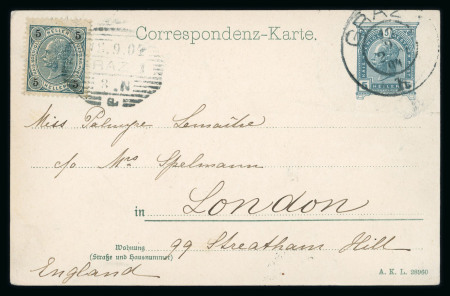 Correspondenz-Karte.
5 5
HELLER
5 5
GRAZ 1
GRAZ
1
Miss Palmyre Lemaître
c/o Mrs Spelmann
in London
Wohnung
(Straße und Hausnummer)
99 Streatham Hill
England
A. K. L. 28960